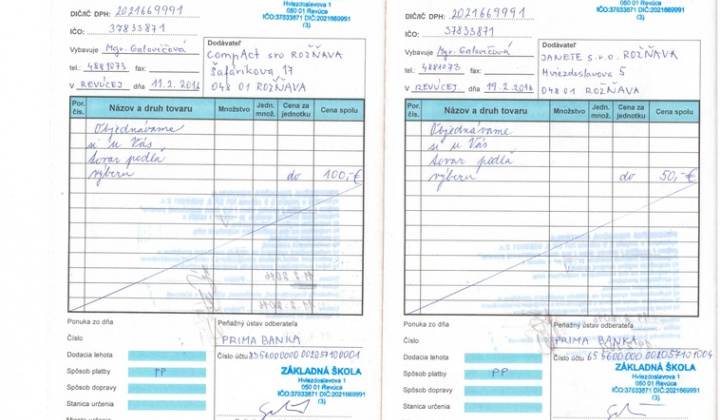 DIČ/IČ DPH: 2021669991
Hviezdoslavova 1
050 01 Revúca
IČO:37833871 DIČ:2021669991
(3)
IČO: 37833871
Vybavuje Mgr. Gatovičová
tel.: 4881073 fax:
V REVÚCEJ dňa 11.2.2016
Dodávateľ
CompAct sro ROŽŇAVA
Šafárikova 17
048 01 ROŽŇAVA
Por. čís.
Názov a druh tovaru
Množstvo
Jedn. množ.
Cena za jednotku
Cena spolu
Objednávame
si u Vás
tovar podľa
výberu do 100,-€
Ponuka zo dňa
Číslo
Dodacia lehota
Spôsob platby PP
Spôsob dopravy
Stanica určenia
Miesto určenia
Peňažný ústav odberateľa
PRIMA BANKA
Číslo účtu
ZÁKLADNÁ ŠKOLA
Hviezdoslavova 1
050 01 Revúca
IČO:37833871 DIČ:2021669991
(3)
DIČ/IČ DPH: 2021669991
050 01 Revúca
IČO:37833871 DIČ:2021669991
(3)
IČO: 37833871
Vybavuje Mgr. Gatovičová
tel.: 4881073 fax:
V REVÚCEJ dňa 19.2.2016
Dodávateľ
JANETE s.r.o. ROŽŇAVA
Hviezdoslavova 5
048 01 ROŽŇAVA
Por. čís.
Názov a druh tovaru
Množstvo
Jedn. množ.
Cena za jednotku
Cena spolu
Objednávame
si u Vás
tovar podľa
výberu do 50,-€
Ponuka zo dňa
Číslo
Dodacia lehota
Spôsob platby PP
Spôsob dopravy
Stanica určenia
Peňažný ústav odberateľa
PRIMA BANKA
Číslo účtu
ZÁKLADNÁ ŠKOLA
Hviezdoslavova 1
050 01 Revúca
IČO:37833871 DIČ:2021669991
(3)